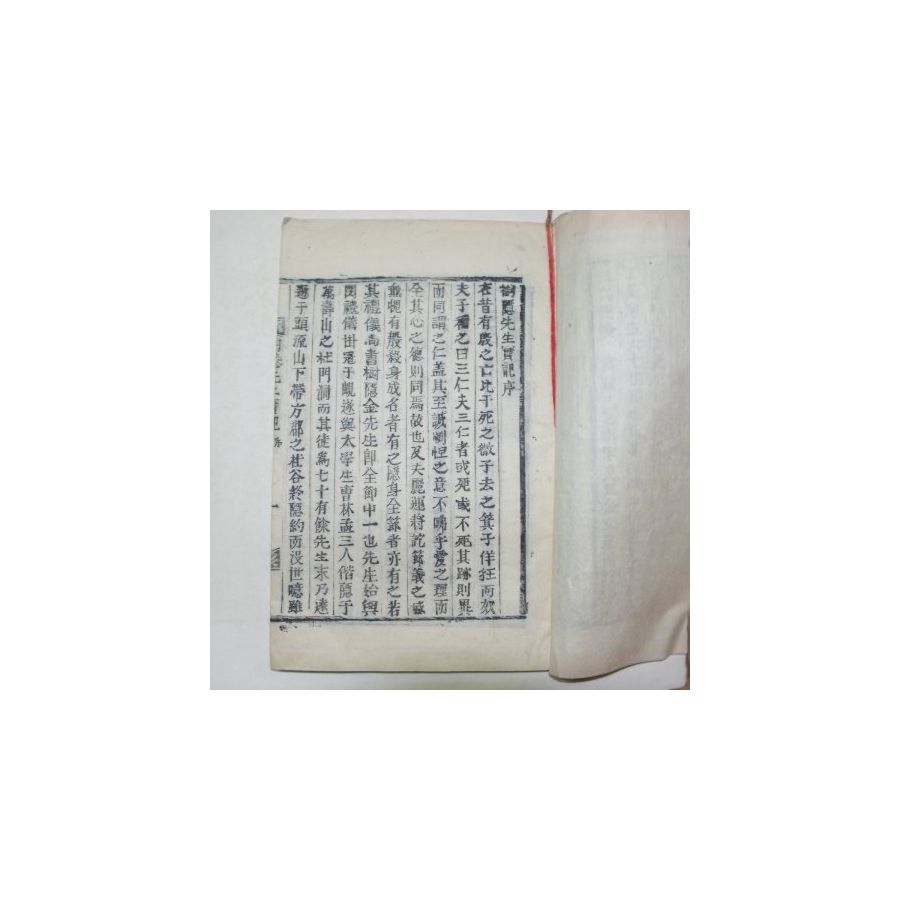 樹隱先生實記序
在昔有殷之亡比干死之微子去之箕子佯狂而奴
夫子稱之曰三仁夫三仁者或死或不死其跡則異
而同謂之仁盖其至誠惻怛之意不咈乎愛之理而
全其心之德則同焉故也及夫麗運將訖節義之盛
軼有殷殺身成名者有之隱身全節者亦有之若
其禮儀尚書樹隱金先生卽全節中一也先生始與
閔禮儀掛冠于峴遂與太學生曺林孟三人偕隱于
萬壽山之杜門洞而其徒爲七十有餘先生末乃遠
遯于頭流山下帶方郡之杜谷終隱約而沒世噫雖
序
一